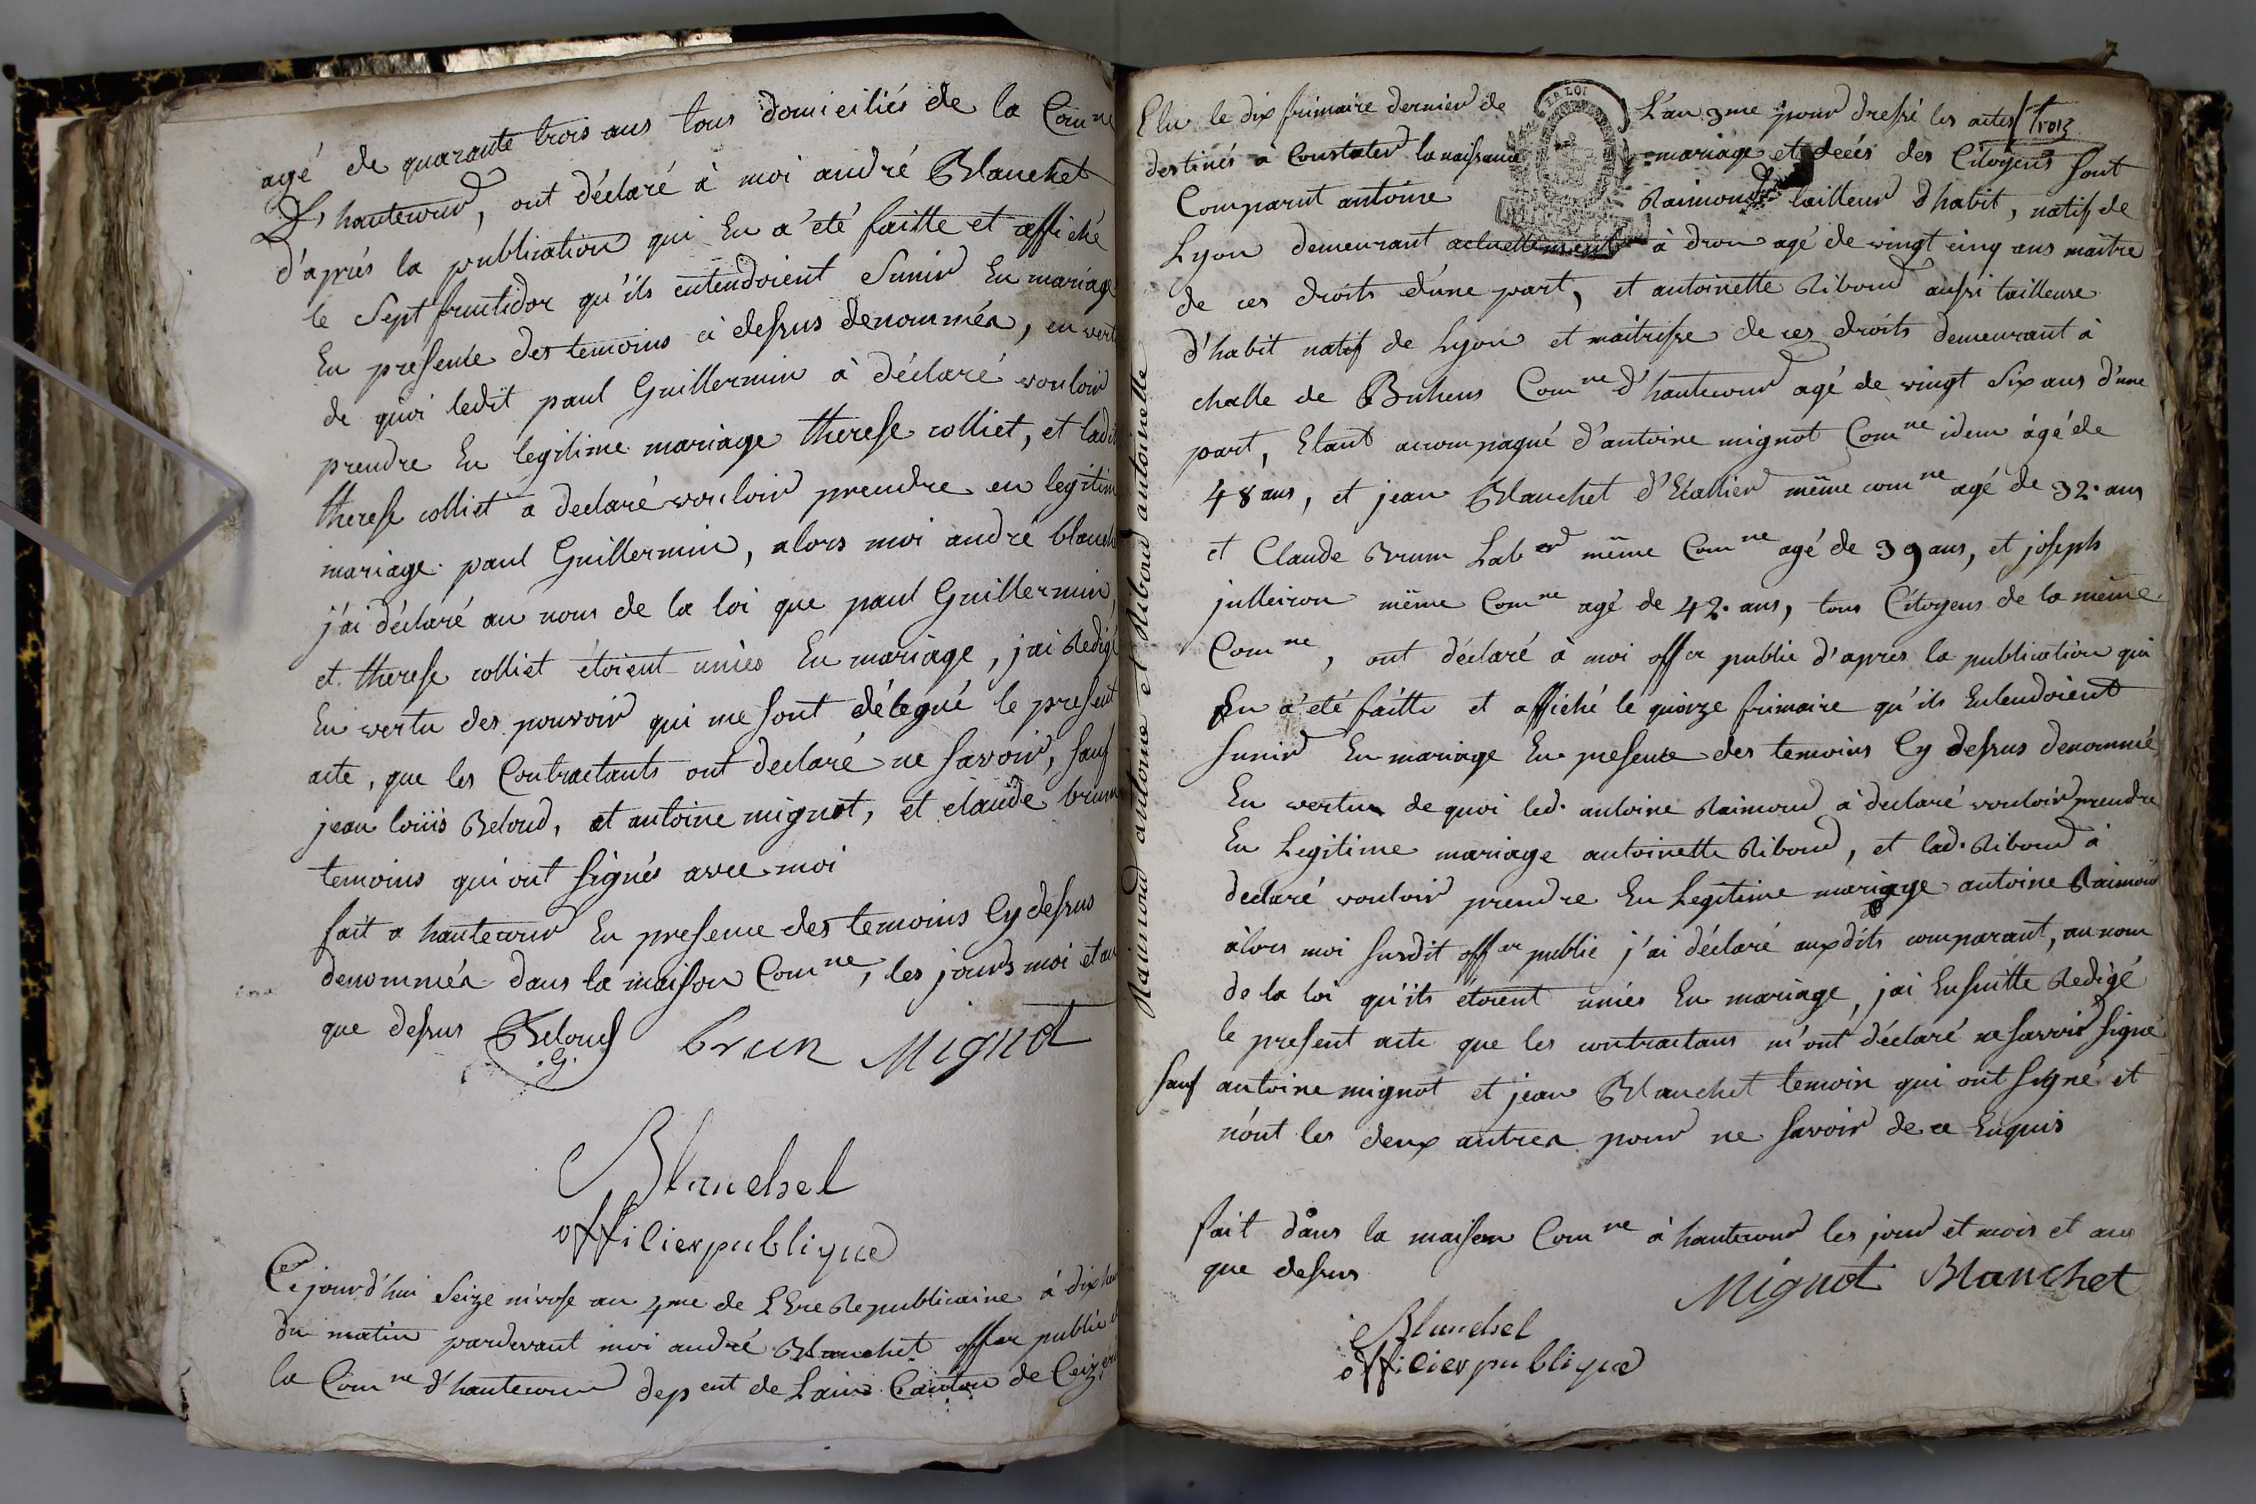 agé de quarante trois ans tous domiciliés de la Comne
D'hautecour, ont déclaré à moi andré Blanchet
d'aprés la publication qui En a été faitte et affiché
le Sept fructidor qu'ils entendoient Sunir En mariage
En presence des temoins ci dessus denommés, en vert
de quoi ledit paul Guillermin à déclaré vouloir
prendre En legitime mariage therese colliet, et ladit
therese colliet a declaré vouloir prendre en legitim
mariage paul Guillermin, alors moi andré blanch
j'ai déclaré au nom de la loi que paul Guillermin
et therese colliet étoient uniés En mariage, j'ai Redigé
En vertu des pouvoir qui me sont délegué le present
acte, que les Contractants ont declaré ne savoir, sauf
jean loüis Beloud, et antoine mignot, et claude brun
temoins qui ont signés avec moi
fait a hautecour En presence des temoins Cy dessus
denommés dans la maison Comne, les jours moi et an
que dessus Beloud
.G.
brun Mignot
Blanchet
officier publique
Ce jourd'hui Seize nivose an 4me de L'Ere Republicaine à dix heu
du matin pardevant moi andré Blanchet offer public d
la Comne d'hautecour depent de Lain Canton de Ceizeri
Raimond antoine et Riboud antoinette
LA LOI
Elu le dix frimaire dernier de L'an 3me pour dressé les actes
troiz
destinés a Constater la naissance mariage et decés des Citoyens sont
Comparut antoine Raimond tailleur d'habit, natif de
Lyon demeurant actuellement à drom agé de vingt cinq ans maitre
de ces droits d'une part, et antoinette Riboud aussi tailleuse
d'habit natif de Lyon et maitrisse de ces droits demeurant à
challe de Buhens Comne d'hautecour agé de vingt Six ans d'une
part, Etant accompagné d'antoine mignot Comne idem âgé de
48 ans, et jean Blanchet d'Etallier même comne agé de 32. ans
et Claude Brun Laber même Comne agé de 39 ans, et joseph
julleiron même Comne agé de 42. ans, tous Citoyens de la même
Comne, ont déclaré à moi offer public d'apres la publication qui
En a été faitte et affiché le quinze frimaire qu'ils Entendoient
sunir En mariage En presence des temoins Cy dessus denommé
En vertu de quoi led. antoine Raimond à declaré vouloir prendre
En Legitime mariage antoinette Riboud, et lad. Riboud à
declaré vouloir prendre En Legitime mariage antoine Raimon
àlors moi susdit offer public j'ai déclaré auxdits comparant, au nom
de la loi qu'ils étoient uniés En mariage, j'ai Ensuitte Redigé
le present acte que les contractans m'ont déclaré ne savoir signé
sauf antoine mignot et jean Blanchet temoin qui ont signé et
n'ont les deux autres pour ne savoir de ce Enquis
fait dans la maison Comne à hautecour les jour et mois et an
que dessus
Mignot Blanchet
Blanchet
officier publique